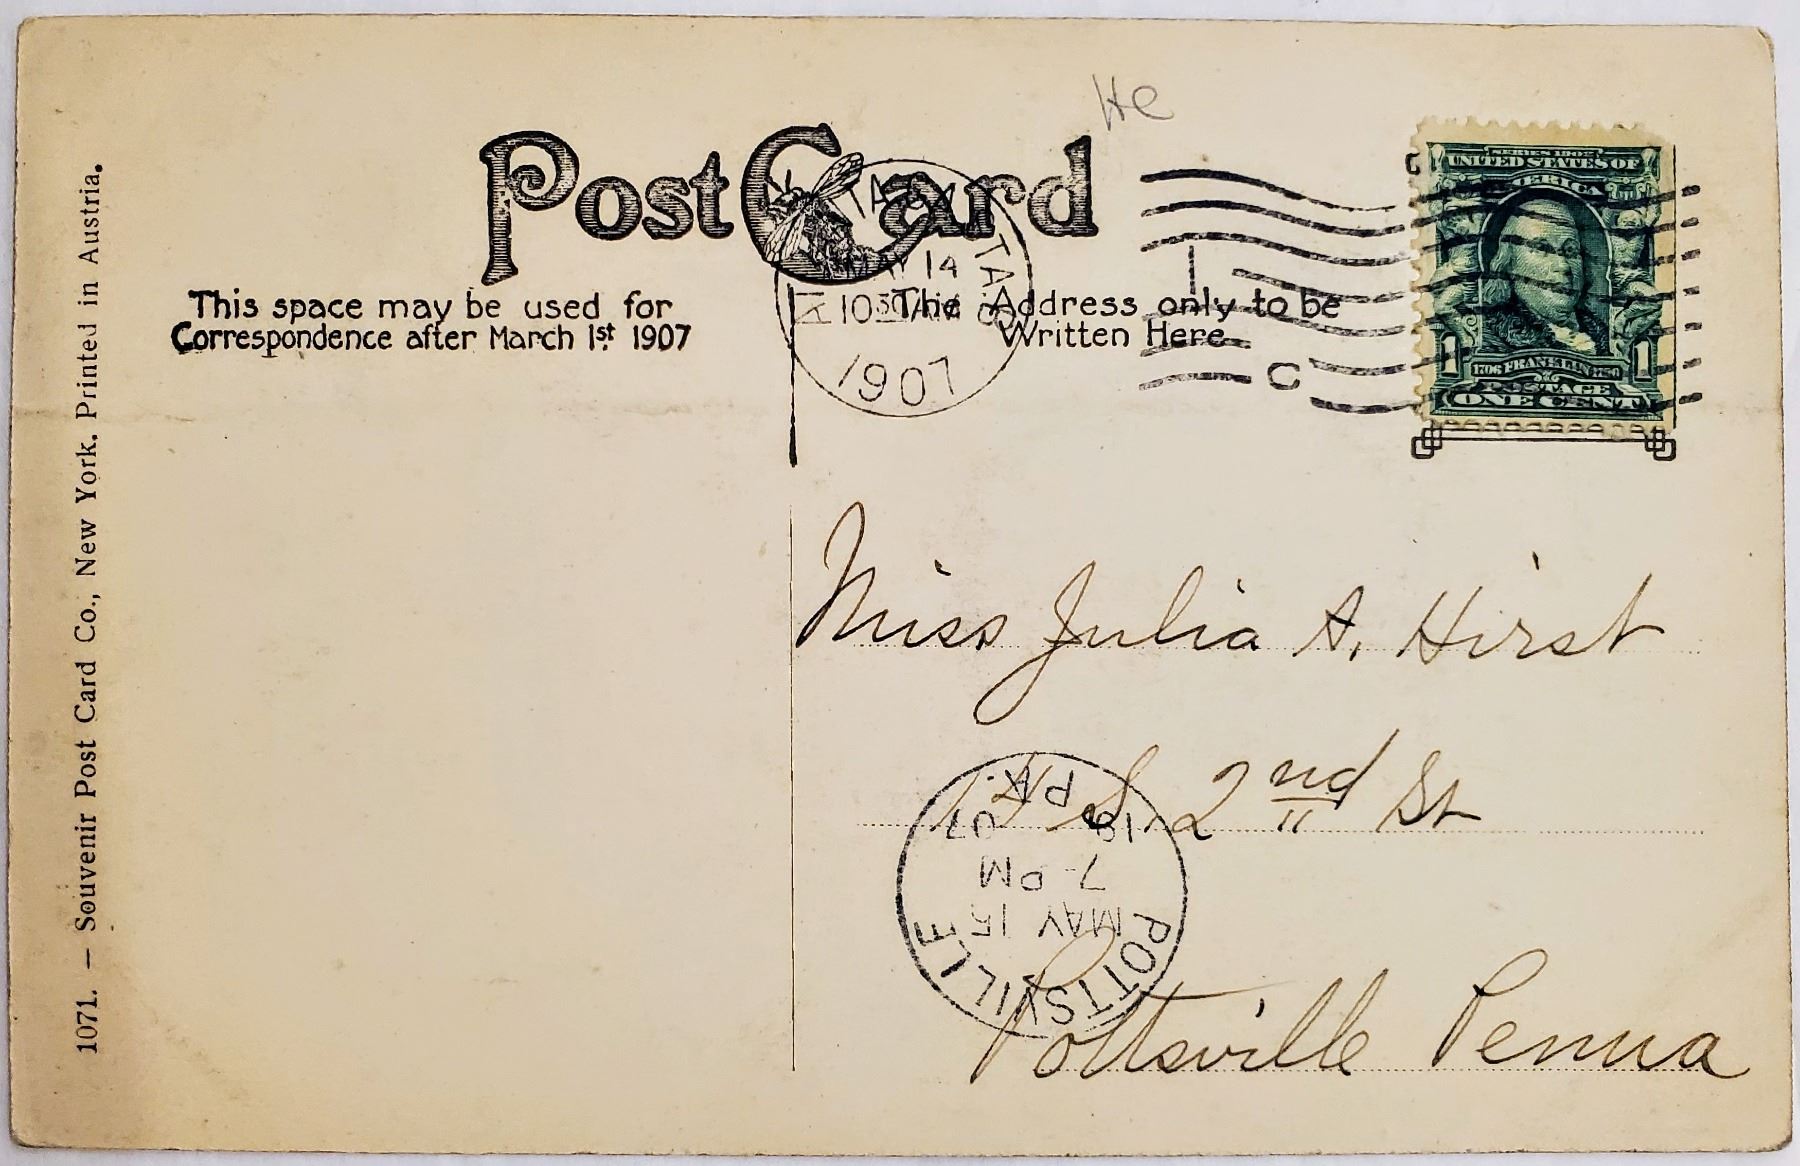 He
Post Card
This space may be used for
Correspondence after March 1st 1907
The Address only to be
Written Here
MAY 14
10 30 AM
1907
C
SERIES 1902
UNITED STATES OF
AMERICA
1 1
1706 FRANKLIN 1790
POSTAGE
ONE CENT
Miss Julia A. Hirst
S. 2nd St
Pottsville Penna
POTTSVILLE
MAY 15
7-PM
19 07
PA.
1071. – Souvenir Post Card Co., New York. Printed in Austria.